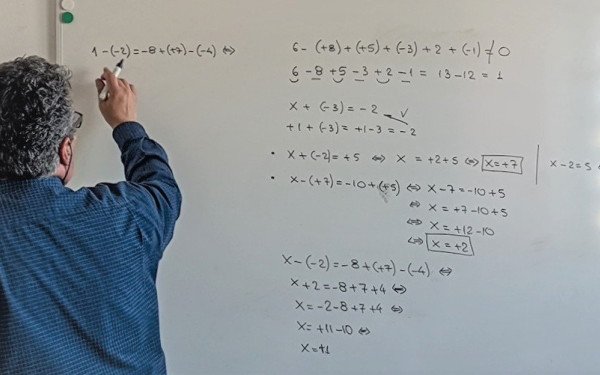 1 - (-2) = -8 + (+7) - (-4) ⇔
6 - (+8) + (+5) + (-3) + 2 + (-1) ≠ 0
6 - 8 + 5 - 3 + 2 - 1 = 13 - 12 = 1
x + (-3) = -2
+1 + (-3) = +1 - 3 = -2 ✓
• x + (-2) = +5 ⇔ x = +2 + 5 ⇔ x = +7 | x - 2 = 5
• x - (+7) = -10 + (+5) ⇔ x - 7 = -10 + 5
⇔ x = +7 - 10 + 5
⇔ x = +12 - 10
⇔ x = +2
x - (-2) = -8 + (+7) - (-4) ⇔
x + 2 = -8 + 7 + 4 ⇔
x = -2 - 8 + 7 + 4 ⇔
x = +11 - 10 ⇔
x = +1